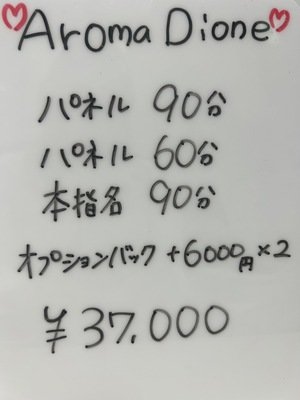 Aroma Dione
パネル 90分
パネル 60分
本指名 90分
オプションバック +6000円×2
¥37.000